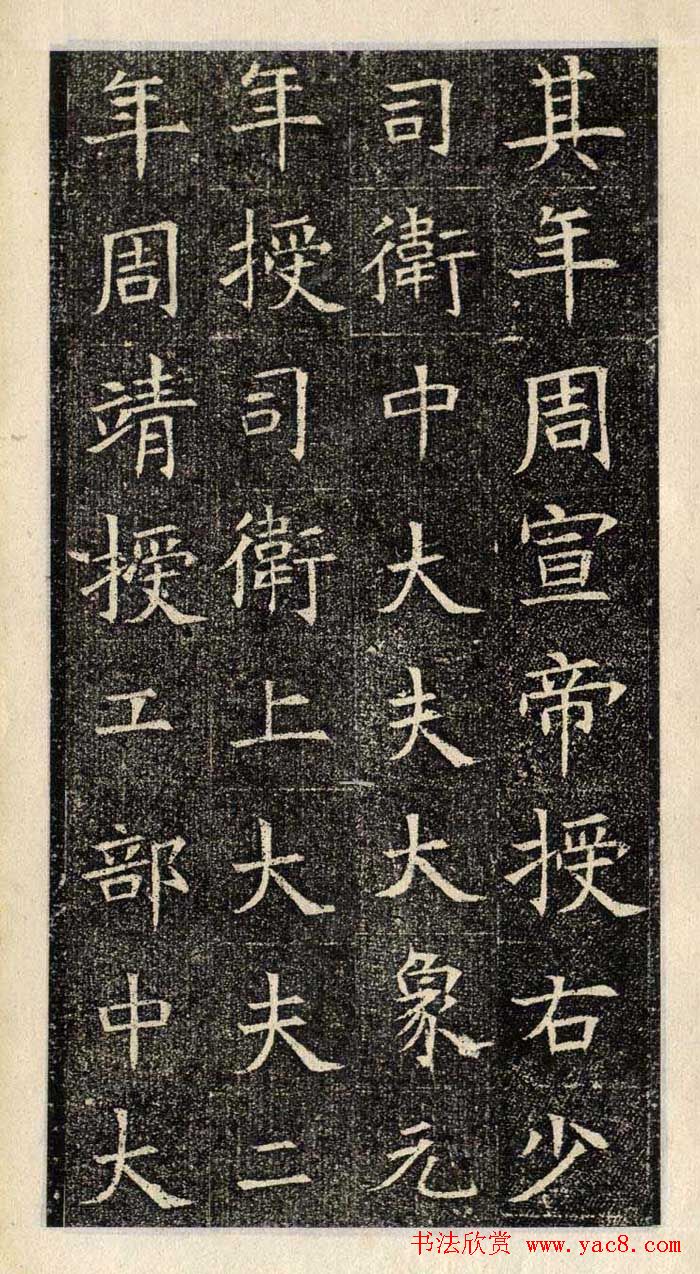 其年周宣帝授右少
司衛中大夫大象元
年授司衛上大夫二
年周靖授工部中大
书法欣赏 www.yac8.com